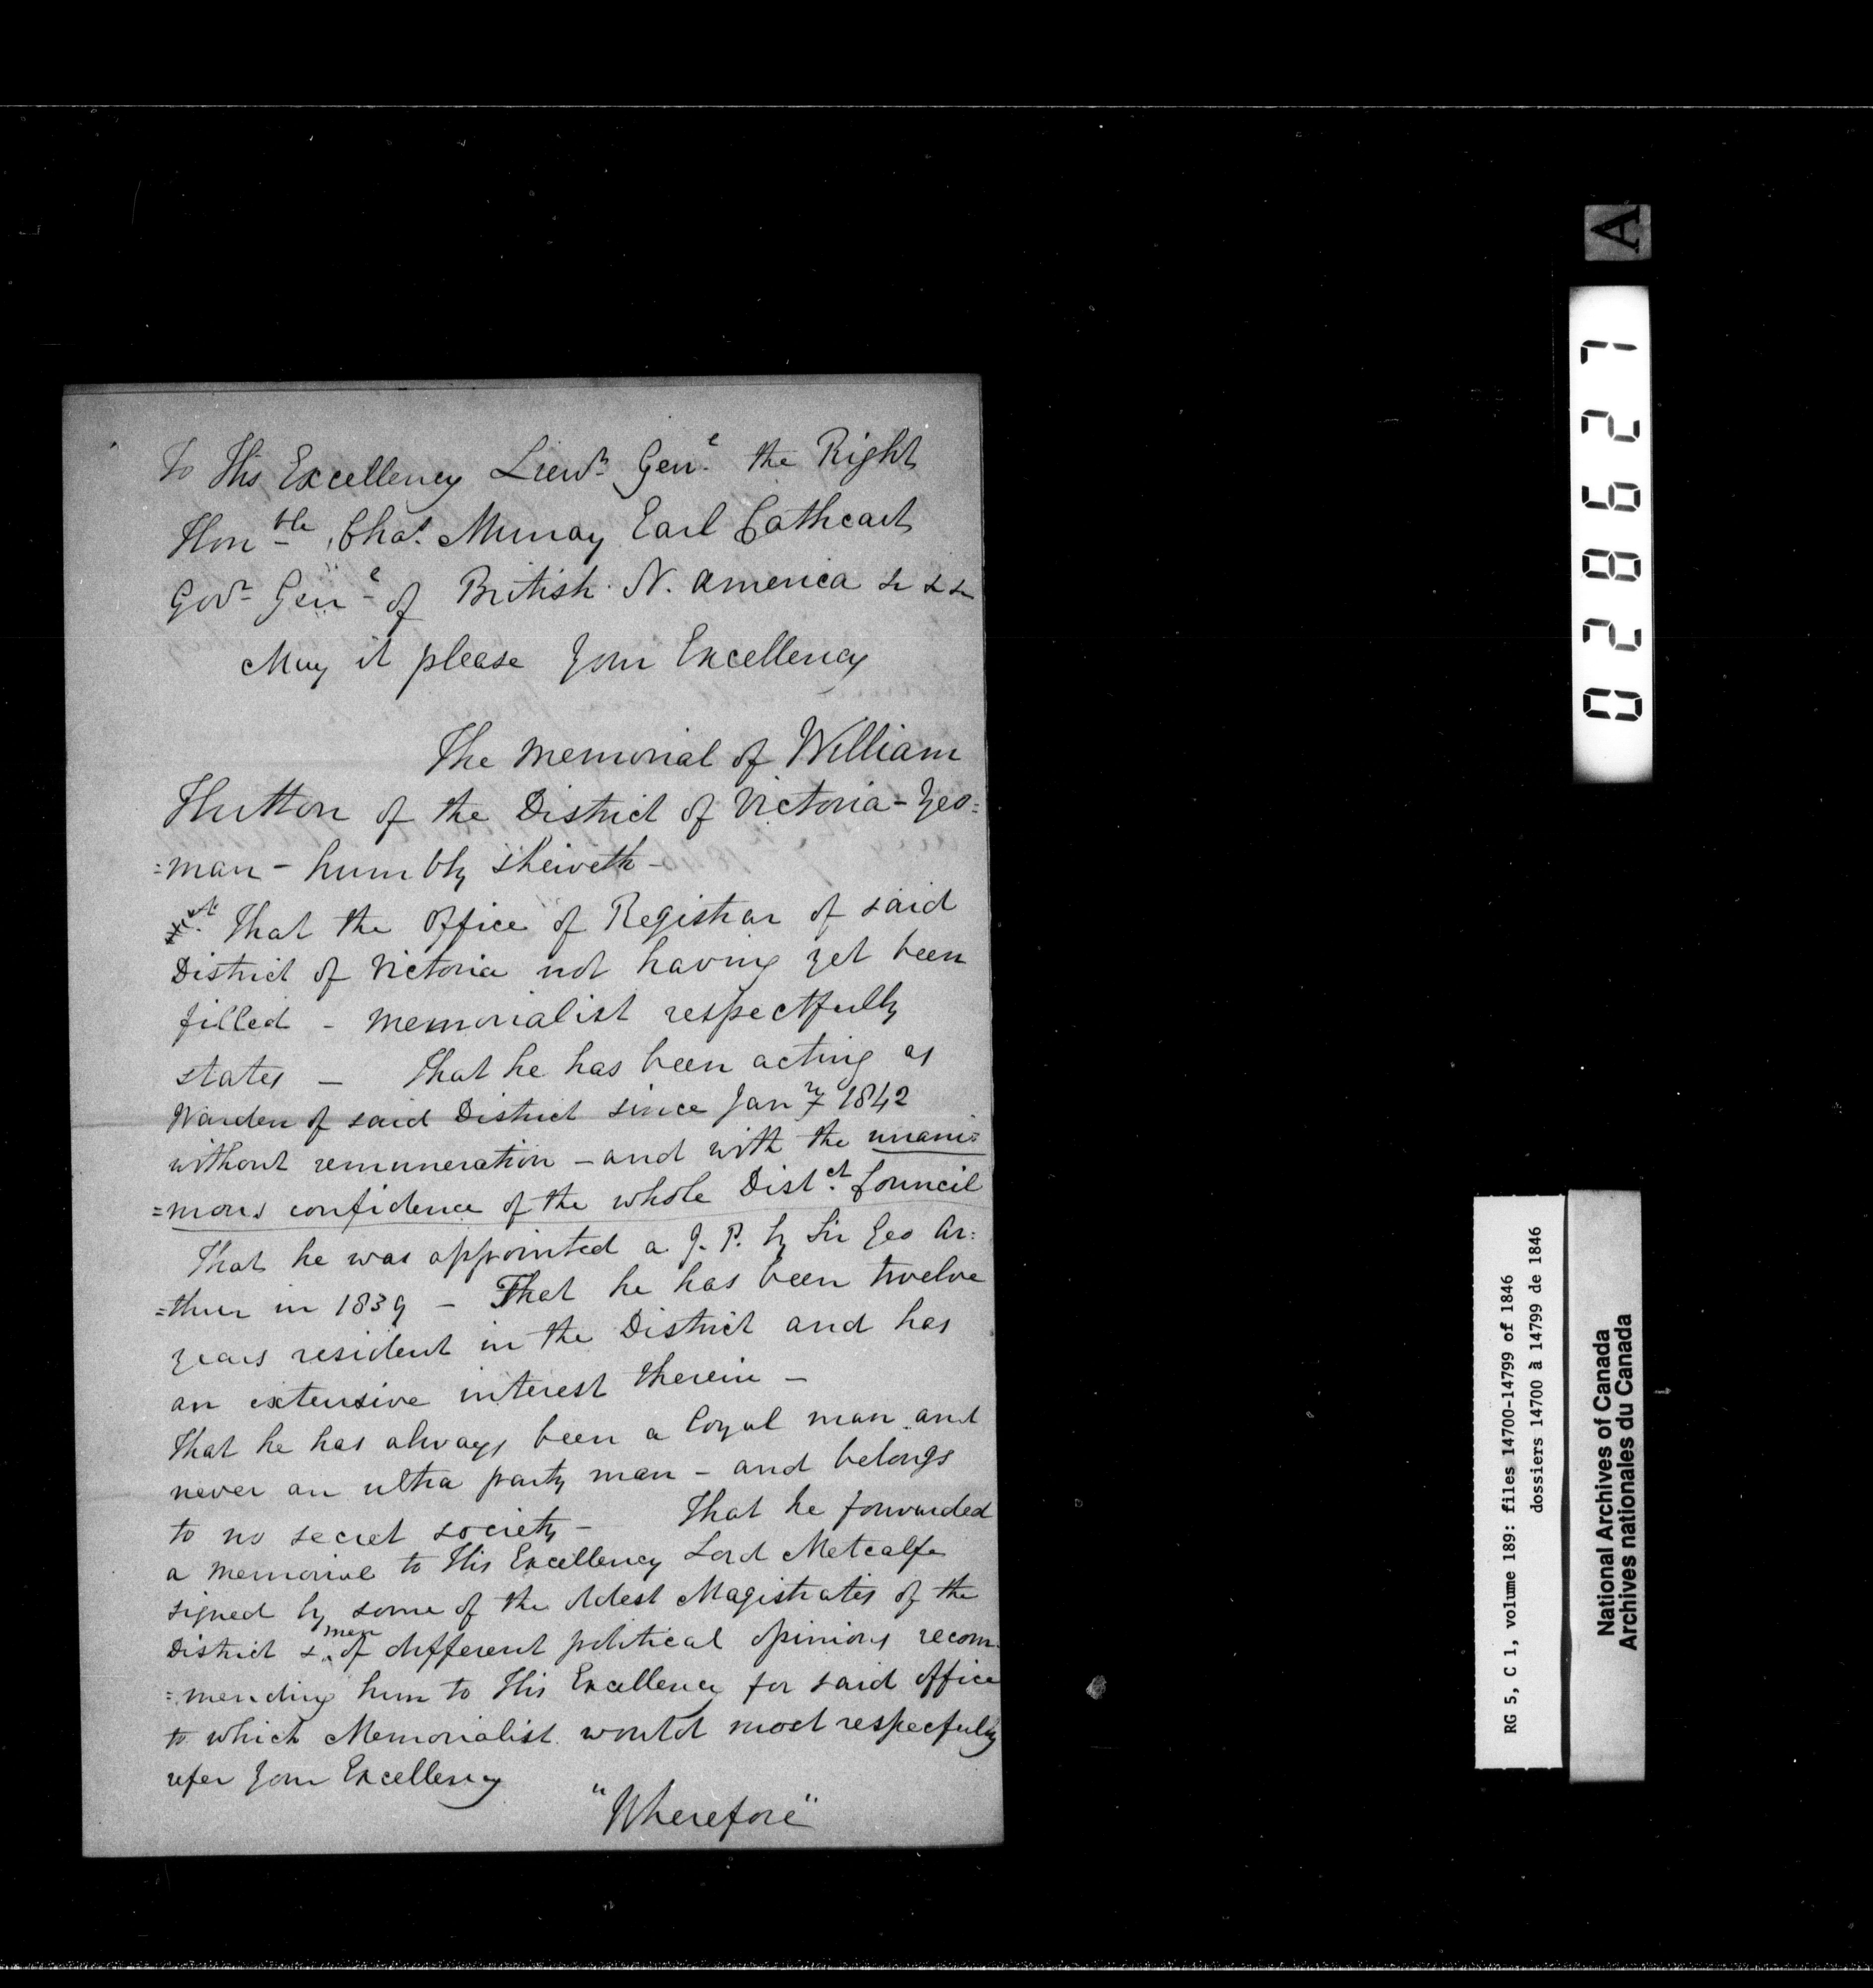 To His Excellency Lieut. Genl. the Right
Honble. Chas. Murray Earl Cathcart
Govr. Genl. of British N. America & & &
May it please Your Excellency
The Memorial of William
Hutton of the District of Victoria - Yeo=
=man - humbly sheweth -
That the Office of Registrar of said
District of Victoria not having yet been
filled - Memorialist respectfully
states - That he has been acting as
Warden of said District since Jany 1842
without remuneration - and with the unani=
=mous confidence of the whole Distct. Council
That he was appointed a J. P. by Sir Geo Ar=
=thur in 1839 - That he has been twelve
years resident in the District and has
an extensive interest therein -
That he has always been a loyal man and
never an ultra party man - and belongs
to no secret society - That he forwarded
a memorial to His Excellency Lord Metcalfe
signed by some of the oldest Magistrates of the
District & men of different political opinions recom=
=mending him to His Excellency for said office
to which Memorialist would most respecfully
refer Your Excellency
"Wherefore"
A
028627
RG 5, C 1, volume 189: files 14700-14799 of 1846
dossiers 14700 à 14799 de 1846
National Archives of Canada
Archives nationales du Canada